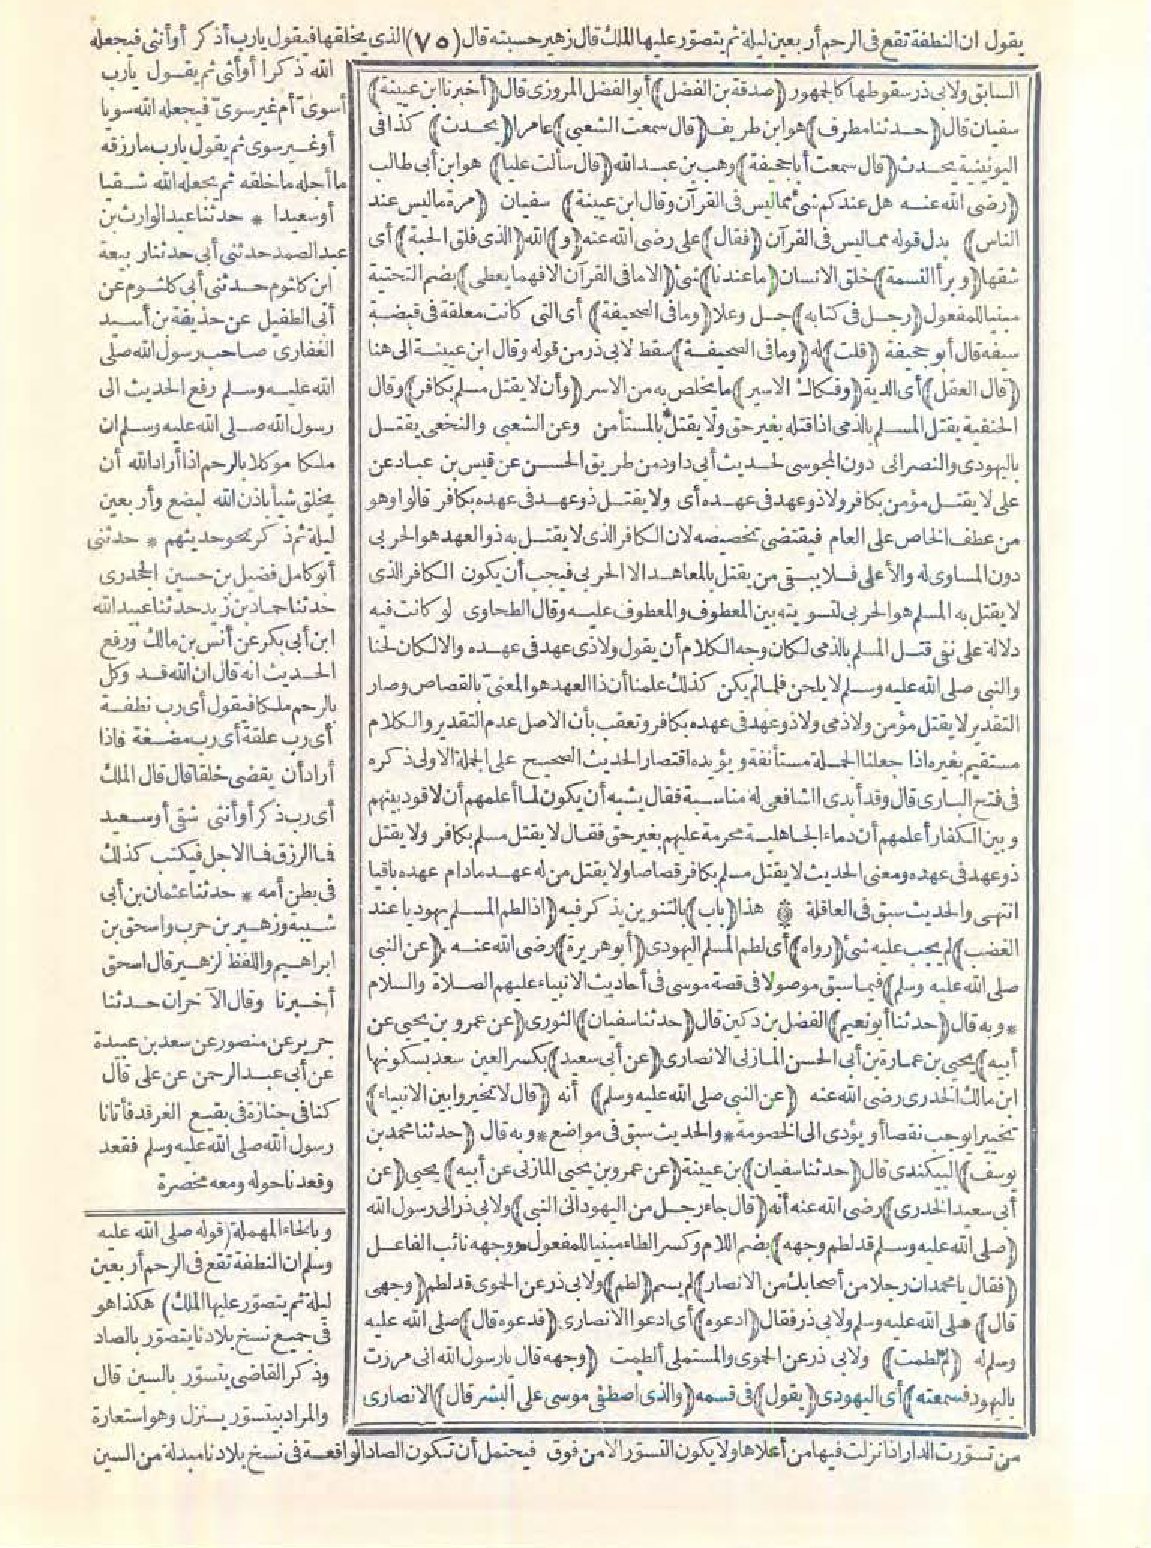 يقول ان النطفة تقع فى الرحم أربعين ليلة ثم يتصور عليها الملك قال زهير حسبته قال (٧٥) الذى يخلقها فيقول يارب أذكر أو أنثى فيجعله
السابق ولابى ذر سقوطها كالجمهور (صدقة بن الفضل) أبو الفضل المروزى قال (أخبرنا ابن عيينة)
سفيان قال (حدثنا مطرف) هو ابن طريف (قال سمعت الشعبى) عامرا (يحدث) كذا فى
اليونينية يحدث (قال سمعت أبا جحيفة) وهب بن عبد الله (قال سألت عليا) هو ابن أبى طالب
(رضى الله عنه هل عندكم شئ مماليس فى القرآن وقال ابن عيينة) سفيان (مرة ماليس عند
الناس) بدل قوله مماليس فى القرآن (فقال) على رضى الله عنه (و) الله (الذى فلق الحبة) أى
شقها (وبرأ النسمة) خلق الانسان (ما عندنا) شئ (الا ما فى القرآن الا فهما يعطى) بضم التحتية
مبنيا للمفعول (رجل فى كتابه) جل وعلا (وما فى الصحيفة) أى التى كانت معلقة فى قبضة
سيفه قال أبو جحيفة (قلت) له (وما فى الصحيفة) سقط لابى ذر من قوله وقال ابن عيينة الى هنا
(قال العقل) أى الدية (وفكاك الاسير) ما يخلص به من الاسر (وأن لا يقتل مسلم بكافر) وقال
الحنفية يقتل المسلم بالذمى اذا قتله بغير حق ولا يقتل بالمستأمن وعن الشعبى والنخعى يقتل
باليهودى والنصرانى دون المجوسى لحديث أبى داود من طريق الحسن عن قيس بن عباد عن
على لا يقتل مؤمن بكافر ولا ذو عهد فى عهده أى ولا يقتل ذو عهد فى عهده بكافر قالوا وهو
من عطف الخاص على العام فيقتضى تخصيصه لان الكافر الذى لا يقتل به ذو العهد هو الحربى
دون المساوى له والأعلى فلا يبقى من يقتل بالمعاهد الا الحربى فيجب أن يكون الكافر الذى
لا يقتل به المسلم هو الحربى لتسويته بين المعطوف والمعطوف عليه وقال الطحاوى لو كانت فيه
دلالة على نفى قتل المسلم بالذمى لكان وجه الكلام أن يقول ولا ذى عهد فى عهده والا لكان لحنا
والنبى صلى الله عليه وسلم لا يلحن فلما لم يكن كذلك علمنا أن ذا العهد هو المعنى بالقصاص وصار
التقدير لا يقتل مؤمن ولا ذمى ولا ذو عهد فى عهده بكافر وتعقب بأن الاصل عدم التقدير والكلام
مستقيم بغيره اذا جعلنا الجملة مستأنفة ويؤيده اقتصار الحديث الصحيح على الجملة الاولى ذكره
فى فتح البارى قال وقد أبدى الشافعى له مناسبة فقال يشبه أن يكون لما أعلمهم أن لا قود بينهم
وبين الكفار أعلمهم أن دماء الجاهلية محرمة عليهم بغير حق فقال لا يقتل مسلم بكافر ولا يقتل
ذو عهد فى عهده ومعنى الحديث لا يقتل مسلم بكافر قصاصا ولا يقتل من له عهد مادام عهده باقيا
انتهى والحديث سبق فى العاقلة * هذا (باب) بالتنوين يذكر فيه (اذا لطم المسلم يهوديا عند
الغضب) لم يجب عليه شئ (رواه) أى لطم المسلم اليهودى (أبو هريرة) رضى الله عنه (عن النبى
صلى الله عليه وسلم) فيما سبق موصولا فى قصة موسى فى أحاديث الانبياء عليهم الصلاة والسلام
* وبه قال (حدثنا أبو نعيم) الفضل بن دكين قال (حدثنا سفيان) الثورى (عن عمرو بن يحيى عن
أبيه) يحيى بن عمارة بن أبى الحسن المازنى الانصارى (عن أبى سعيد) بكسر العين سعد بسكونها
ابن مالك الخدرى رضى الله عنه (عن النبى صلى الله عليه وسلم) أنه (قال لا تخيروا بين الانبياء)
تخييرا يوجب نقصا أو يؤدى الى الخصومة * والحديث سبق فى مواضع * وبه قال (حدثنا محمد بن
يوسف) البيكندى قال (حدثنا سفيان) بن عيينة (عن عمرو بن يحيى المازنى عن أبيه) يحيى (عن
أبى سعيد الخدرى) رضى الله عنه أنه (قال جاء رجل من اليهود الى النبى) ولابى ذر الى رسول الله
(صلى الله عليه وسلم قد لطم وجهه) بضم اللام وكسر الطاء مبنيا للمفعول ووجهه نائب الفاعل
(فقال يا محمد ان رجلا من أصحابك من الانصار) لم يسم (لطم) ولابى ذر عن الحموى قد لطم (وجهى
قال) صلى الله عليه وسلم ولابى ذر فقال (ادعوه) أى ادعوا الانصارى (فدعوه قال) صلى الله عليه
وسلم له (لم لطمت) ولابى ذر عن الحموى والمستملى ألطمت (وجهه قال يا رسول الله انى مررت
باليهود فسمعته) أى اليهودى (يقول) فى قسمه (والذى اصطفى موسى على البشر قال) الانصارى
الله ذكرا أو أنثى ثم يقول يارب
أسوى أم غير سوى فيجعله الله سويا
أو غير سوى ثم يقول يارب ما رزقه
ما أجله ما خلقه ثم يجعله الله شقيا
أو سعيدا * حدثنا عبد الوارث بن
عبد الصمد حدثنى أبى حدثنا ربيعة
ابن كلثوم حدثنى أبى كلثوم عن
أبى الطفيل عن حذيفة بن أسيد
الغفارى صاحب رسول الله صلى
الله عليه وسلم رفع الحديث الى
رسول الله صلى الله عليه وسلم ان
ملكا موكلا بالرحم اذا أراد الله أن
يخلق شيأ باذن الله لبضع وأربعين
ليلة ثم ذكر نحو حديثهم * حدثنى
أبو كامل فضيل بن حسين الجحدرى
حدثنا حماد بن زيد حدثنا عبيد الله
ابن أبى بكر عن أنس بن مالك ورفع
الحديث انه قال ان الله قد وكل
بالرحم ملكا فيقول أى رب نطفة
أى رب علقة أى رب مضغة فاذا
أراد أن يقضى خلقا قال قال الملك
أى رب ذكر أو أنثى شقى أو سعيد
فما الرزق فما الاجل فيكتب كذلك
فى بطن أمه * حدثنا عثمان بن أبى
شيبة وزهير بن حرب واسحق بن
ابراهيم واللفظ لزهير قال اسحق
أخبرنا وقال الآخران حدثنا
جرير عن منصور عن سعد بن عبيدة
عن أبى عبد الرحمن عن على قال
كنا فى جنازة فى بقيع الغرقد فأتانا
رسول الله صلى الله عليه وسلم فقعد
وقعدنا حوله ومعه مخصرة
وبالحاء المهملة (قوله صلى الله عليه
وسلم ان النطفة تقع فى الرحم أربعين
ليلة ثم يتصور عليها الملك) هكذا هو
فى جميع نسخ بلادنا يتصور بالصاد
وذكر القاضى يتسور بالسين قال
والمراد بيتسور ينزل وهو استعارة
من تسورت الدار اذا نزلت فيها من أعلاها ولا يكون التسور الا من فوق فيحتمل أن تكون الصاد الواقعة فى نسخ بلادنا مبدلة من السين